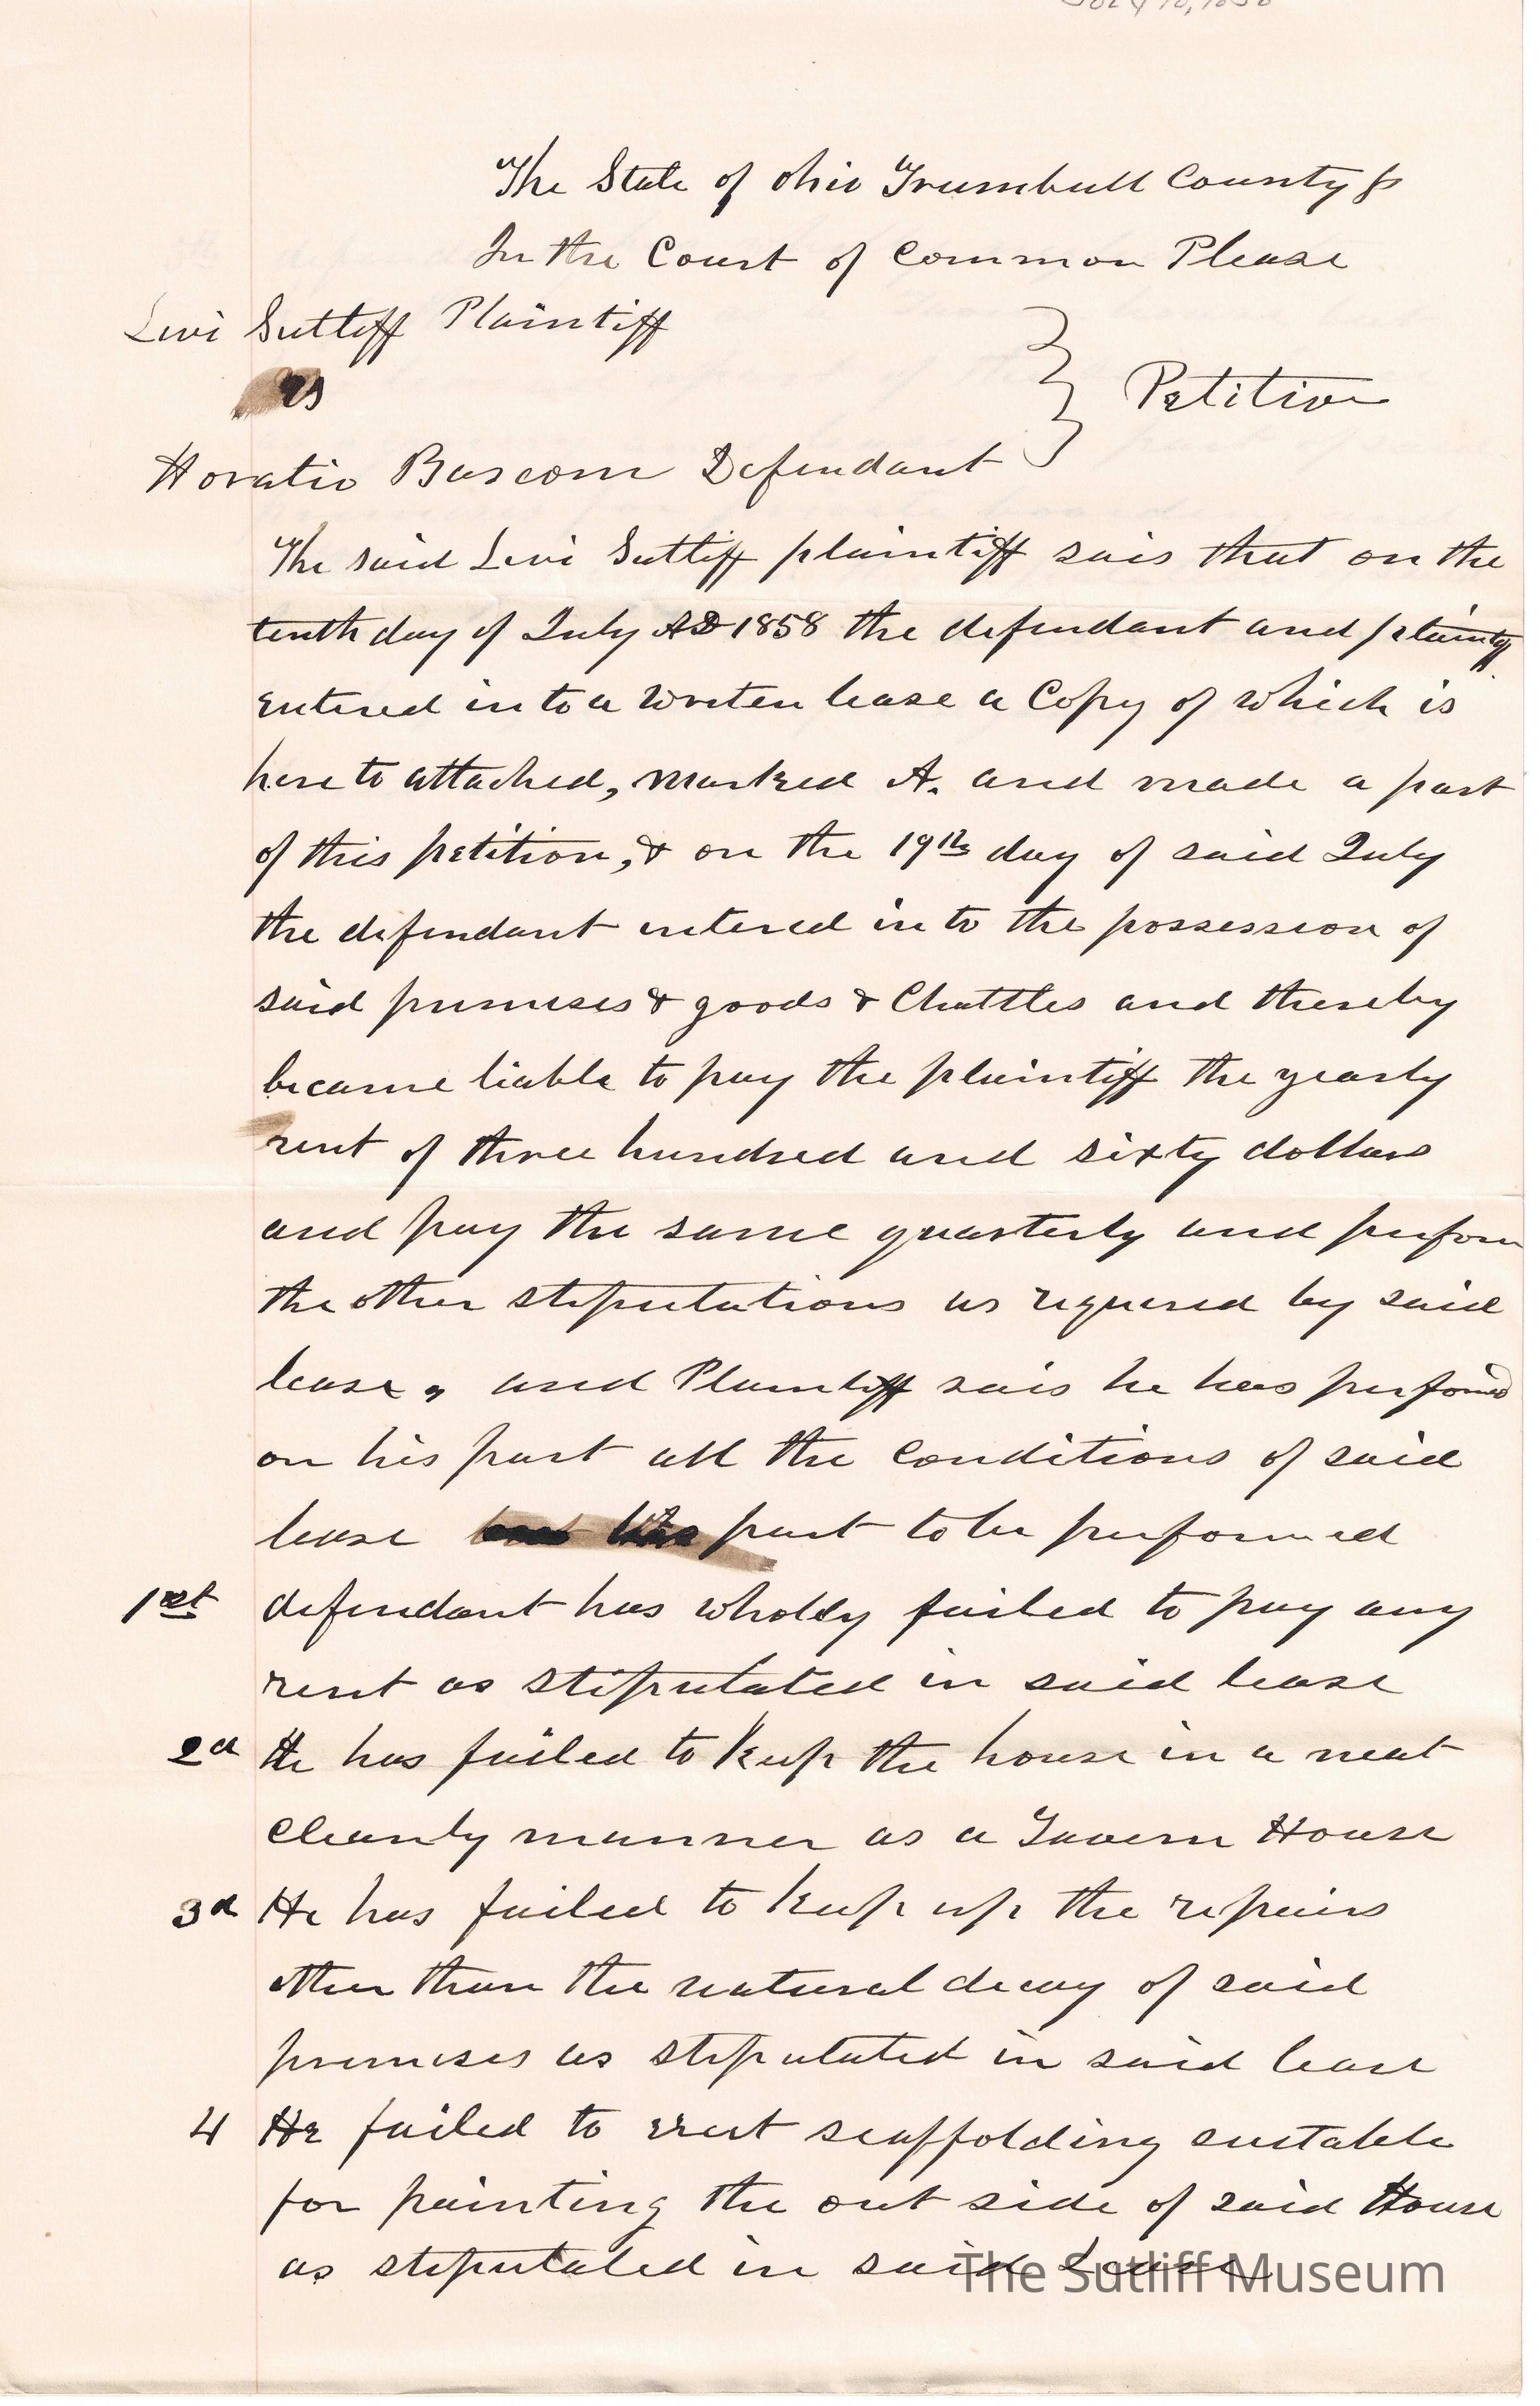 July 10, 1858
The State of Ohio Trumbull County ss
In the Court of Common Please
Levi Sutliff Plaintiff
vs
Petition
Horatio Bascom Defendant
The said Levi Sutliff plaintiff sais that on the
tenth day of July AD 1858 the defendant and plaintiff
entered in to a writen lease a Copy of which is
here to attached, marked A. and made a part
of this petition, & on the 19th day of said July
the defendant entered in to the possession of
said premises & goods & Chattles and thereby
became liable to pay the plaintiff the yearly
rent of three hundred and sixty dollars
and pay the same quarterly and perform
the other stipulations as required by said
lease, and Plaintiff sais he has performed
on his part all the conditions of said
lease part to be performed
1st defendant has wholly failed to pay any
rent as stipulated in said lease
2d He has failed to keep the house in a neat
cleanly manner as a Tavern House
3d He has failed to keep up the repairs
other than the natural decay of said
premises as stipulated in said lease
4 He failed to erect scaffolding suitable
for painting the out side of said House
as stipulated in said Lease
The Sutliff Museum